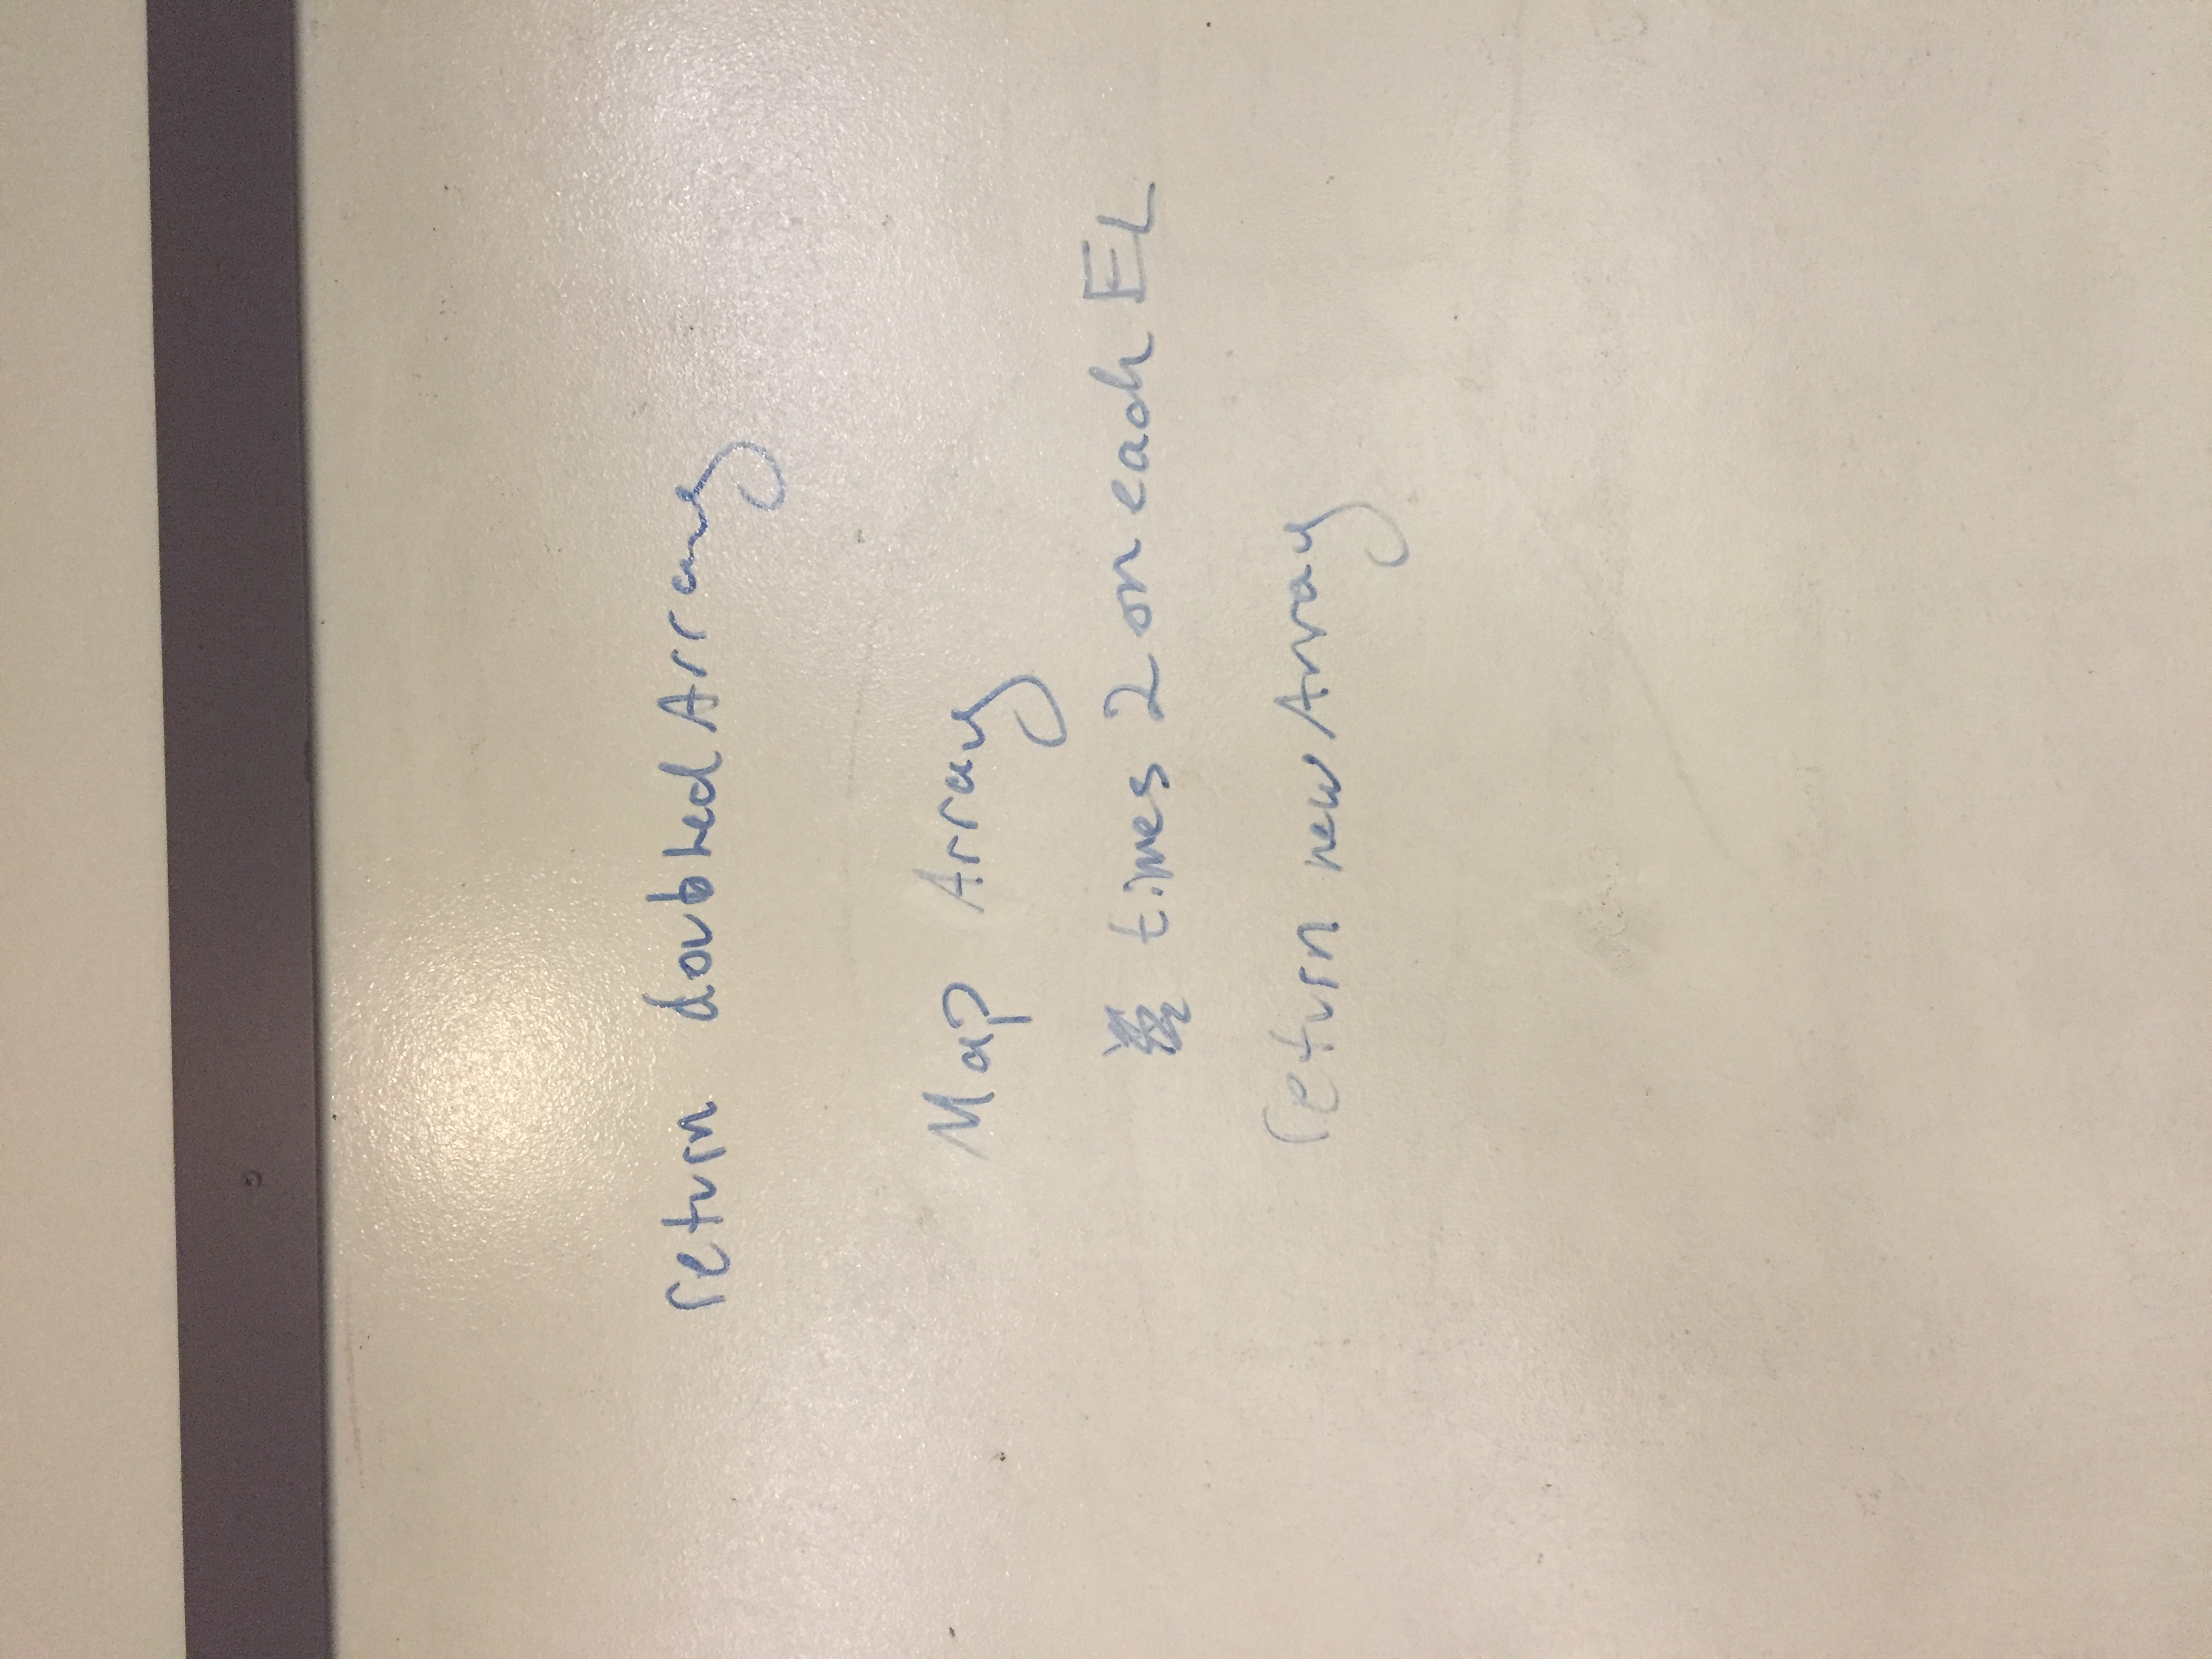 return doubledArray
Map Array
times 2 on each EL
return new Array